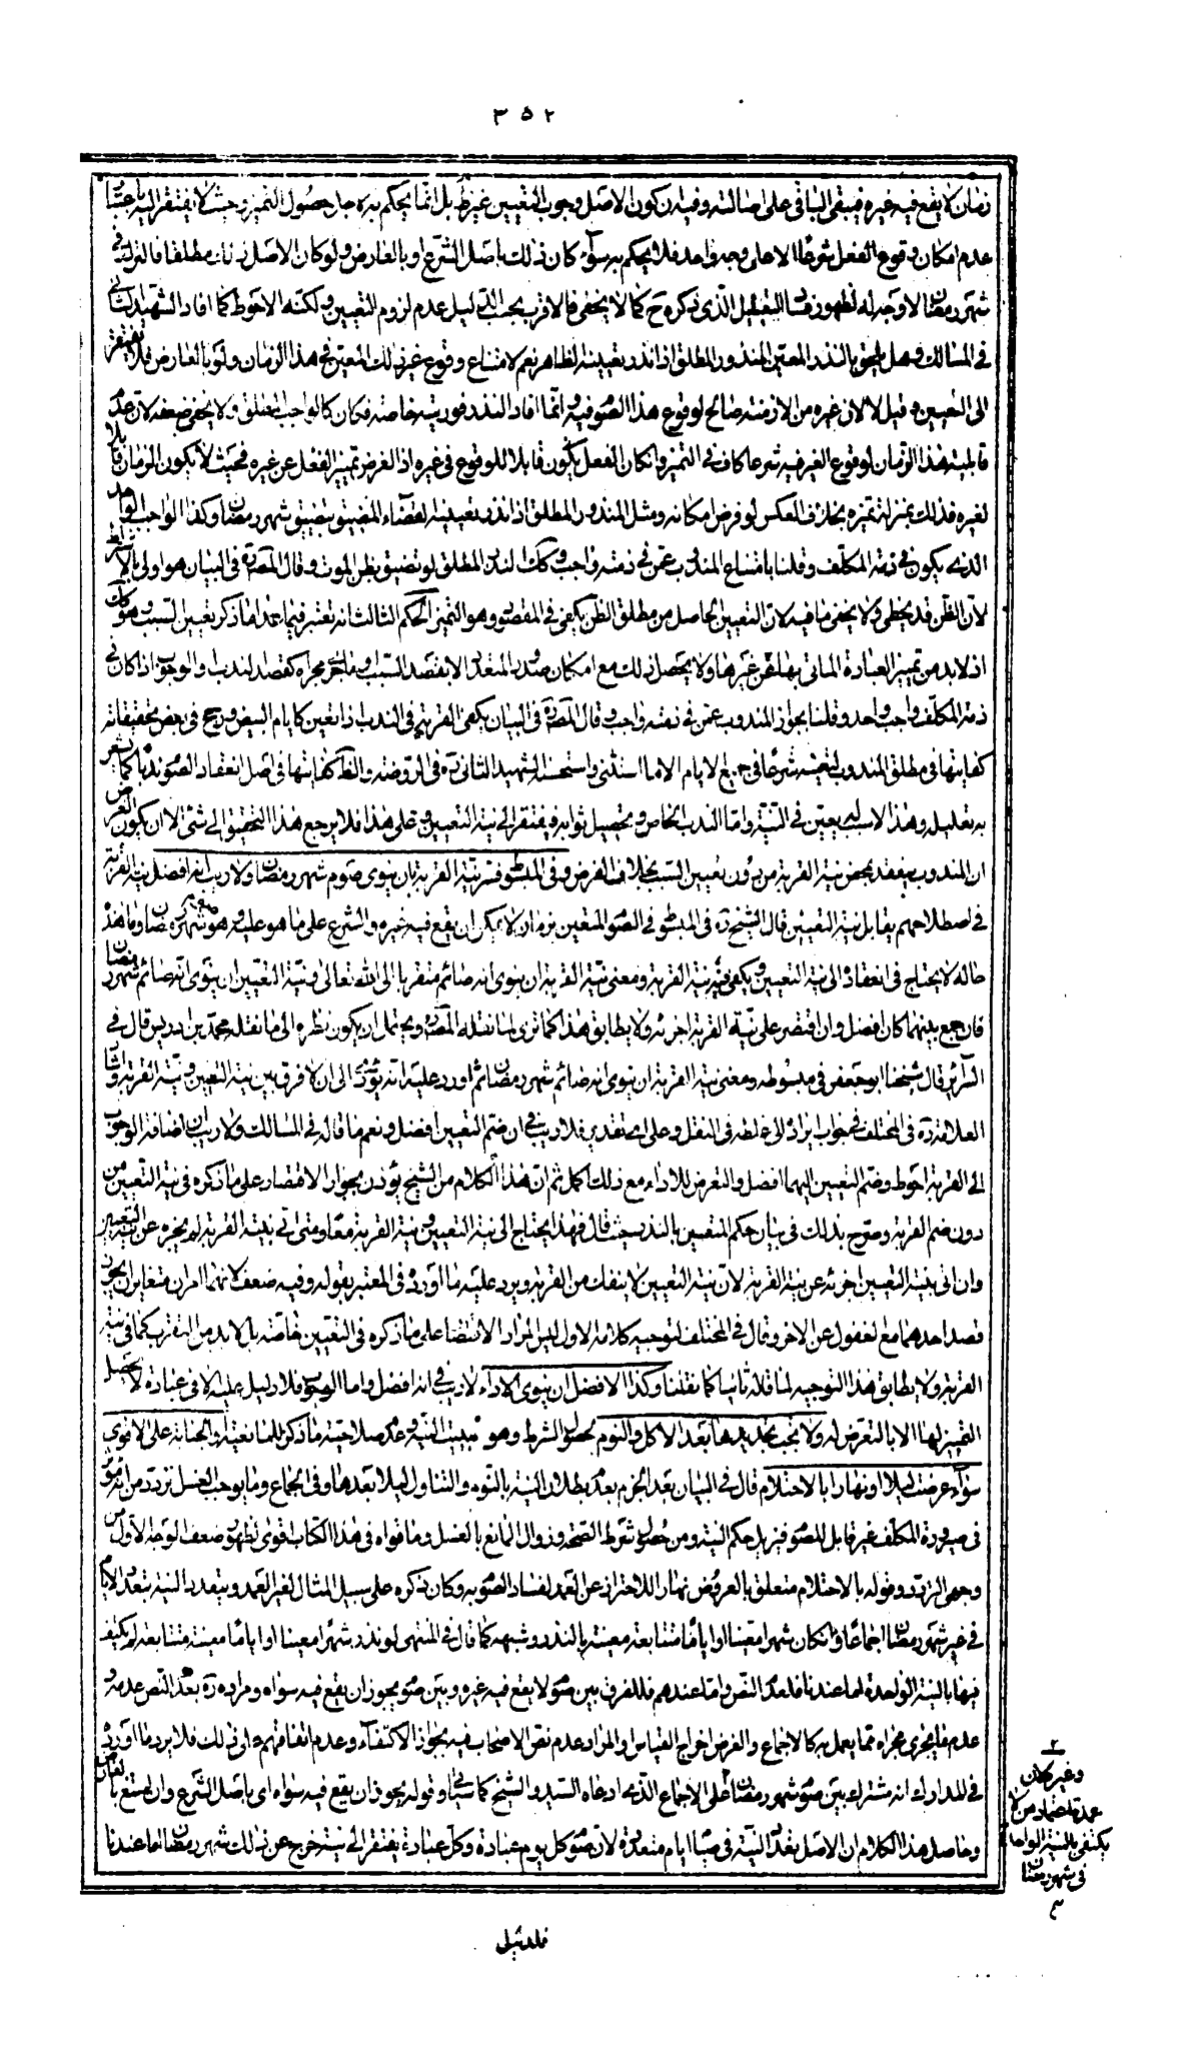 ٣٥٢
زمان لا يقع فيه غيره فيبقى الباقي على اصالته وفيه ان كون الاصل وجوب التعيين غير ظ بل انما يحكم به حال حصول التميز وحيث لا يفتقر اليه باعتبار
عدم امكان وقوع الفعل شرعا الا على وجه واحد فلا يحكم به سواء كان ذلك باصل الشرع او بالعارض ولو كان الاصل ذلك مطلقا فالفرق في
شهر رمضان لا وجه له لظهور التعليل الذي ذكره ح كما لا يخفى فالاقرب بحسب الدليل عدم لزوم التعيين ولكنه الاحوط كما افاد الشهيد الثاني
في المسالك وهل يلحق بالنذر المعين المنذور المطلق اذا نذر تعيينه الظاهر نعم لامتناع وقوع غير ذلك المعين في هذا الزمان ولو بالعارض فلا يفتقر
الى التعيين وقيل لا لان غيره من الازمنة صالح لوقوع هذا الصوم فيه وانما افاد النذر فوريته خاصة فكان كالواجب المطلق ولا يخفى ضعفه لان عدم
قابلية هذا الزمان لوقوع الغير فيه شرعا كاف في التميز وان كان الفعل يكون قابلا للوقوع في غيره اذ الغرض تميز الفعل عن غيره فحيث لا يكون الزمان قابلا
لغيره فذلك بمنزلة تميزه بخلاف العكس لو فرض امكانه ومثل المنذور المطلق اذا نذر تعيينه القضاء المضيق بتضيق شهر رمضان وكذا الواجب الواحد
الذي يكون في ذمة المكلف وقلنا بامتناع المندوب عمن في ذمته واجب وكك النذر المطلق لو تضيق بظن الموت وقال المصره في البيان هو اولى بالاشتراط
لان الظن قد يخطي ولا يخفى ما فيه لان التعيين الحاصل من مطلق الظن يكفي في المقصود وهو التميز الحكم الثالث انه تعتبر فيما عدا ما ذكر تعيين السبب وهو كك
اذ لا بد من تميز العبادة الماتى بها عن غيرها ولا يحصل ذلك مع امكان صور المتعددة الا بقصد السبب وما جرى مجراه كقصد الندب او الوجوب اذا كان في
ذمة المكلف واجب واحد وقلنا بجواز المندوب عمن في ذمته واجب وقال المصره في البيان يكفي القربة في الندب اذا تعين كايام البيض ورجح في بعض تحقيقاته
كفايتها في مطلق المندوب لتعينه شرعا في جميع الايام الا ما استثنى واستحسنه الشهيد الثاني ره في الروضة والظ كفايتها في اصل انعقاد الصوم ندبا كما يشعر
به تعليله وهذا لا سبب له يعين في النية واما الندب الخاص وتحصيل ثوابه فيفتقر الى نية التعيين وعلى هذا فلا يرجع هذا التحقيق الى شئ الا ان يكون الغرض
ان المندوب ينعقد بمحض نية القربة من دون تعيين السبب بخلاف الفرض وفي المبسوط فسر نية القربة بان ينوى صوم شهر رمضان ولا ريب انه افضل نية القربة
في اصطلاحهم يقابل نية التعيين قال الشيخ ره في المبسوط في الصوم المتعين بزمان لا يمكن ان يقع فيه غيره والشرع على ما هو عليه وهو صوم شهر رمضان وما هذا
حاله لا يحتاج في انعقاده الى نية التعيين ويكفي فيه نية القربة ومعنى نية القربة ان ينوى انه صائم متقربا الى الله تعالى ونية التعيين ان ينوى انه صائم شهر رمضان
فان جمع بينهما كان افضل وان اقتصر على نية القربة اجزئه ولا يطابق هذا كما ترى لما نقله المصره ويحتمل ان يكون نظره الى ما نقله محمد بن ادريس قال في
السرائر قال شيخنا ابو جعفر في مبسوطه ومعنى نية القربة ان ينوى انه صائم شهر رمضان ثم اورد عليه انه يؤدى الى ان لا فرق بين نية التعيين ونية القربة واشار
العلامة ره في المختلف في جواب ايراده الى غلطه في النقل وعلى اى تقدير فلا ريب في ان ضم التعيين افضل ونعم ما قاله في المسالك ولا ريب ان اضافة الوجوب
الى القربة احوط وضم التعيين اليهما افضل والتعرض للاداء مع ذلك اكمل ثم ان هذا الكلام من الشيخ يؤذن بجواز الاقتصار على ما ذكره في نية التعيين من
دون ضم القربة وصرح بذلك في بيان حكم المتعين بالنذر حيث قال فهذا يحتاج الى نية التعيين ونية القربة معا ومتى اتى بنية القربة لم يجزه عن نية التعيين
وان اتى بنية التعيين اجزئه عن نية القربة لان نية التعيين لا ينفك من القربة ويرد عليه ما اورده في المعتبر بقوله وفيه ضعف لانهما امران متغايران يجوز
قصد احدهما مع الغفول عن الاخر وقال في المختلف لتوجيه كلامه الاول ليس المراد الاقتصار على ما ذكره في التعيين خاصة بل لا بد من التقرب كما في نية
القربة ولا يطابق هذا التوجيه لما قاله ثانيا كما نقلنا وكذا الافضل ان ينوى الاداء لا ريب في انه افضل واما الوجوب فلا دليل عليه الا في عبادة لا يحصل
التميز لها الا بالتعرض له ولا يجب تجديدها بعد الاكل والنوم لحصول الشرط وهو تبييت النية وعدم صلاحية ما ذكر للمانعية والجنابة على الاقوى
سواء عرضت ليلا او نهارا بالاحتلام قال في البيان بعد الجزم بعدم بطلان النية بالنوم والتناول ليلا بعدها وفي الجماع وما يوجب الغسل تردد من انه مؤثر
في صيرورة المكلف غير قابل للصوم فيزيل حكم النية ومن حصول شرط الصحة وزوال المانع بالغسل وما قواه في هذا الكتاب اقوى لظهور ضعف الوجه الاول من
وجهى التردد وقوله بالاحتلام متعلق بالعروض نهارا للاحتراز عن العمد لفساد الصوم به وكان ذكره على سبيل المثال لغير العمد ويتعدد النية بتعدد الايام
في غير شهر رمضان اجماعا وان كان شهرا معينا او اياما متتابعة معينة بالنذر وشبهه كما قال في المنتهى لو نذر شهرا معينا او اياما معينة متتابعة لم يكتف
فيها بالنية الواحدة اما عندنا فلعدم النص واما عندهم فللفرق بين صوم لا يقع فيه غيره وبين صوم يجوز ان يقع فيه سواه ومراده ره بعدم النص عدمه و
عدم ما يجرى مجراه مما يعمل به كالاجماع والغرض اخراج القياس او المراد عدم نص الاصحاب فيه بجواز الاكتفاء وعدم اتفاقهم الى ذلك فلا يرد ما اورده
في المدارك انه مشترك بين صوم شهر رمضان على الاجماع الذي ادعاه السيد والشيخ كما سيجئ او قوله يجوز ان يقع فيه سواه اى باصل الشرع وان امتنع بالعارض
وحاصل هذا الكلام ان الاصل تعدد النية في صيام ايام متعددة لان صوم كل يوم عبادة وكل عبادة يفتقر الى نية خرج عن ذلك شهر رمضان اما عندنا
٢
وغيره كان
عمدة اعتماد من لا
يكتفى بالنية الواحدة
في شهر رمضان
٣
فلدليل